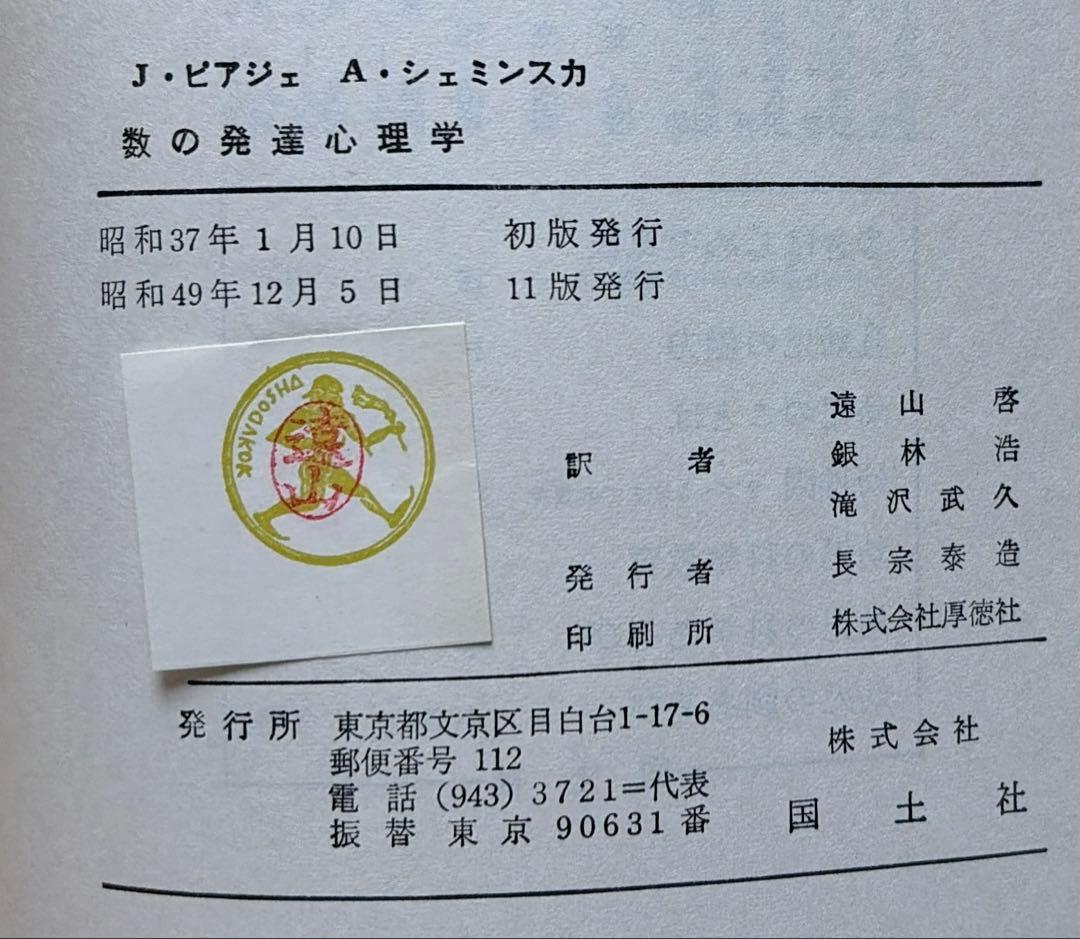 J・ピアジェ A・シェミンスカ
数の発達心理学
昭和37年1月10日 初版発行
昭和49年12月5日 11版発行
KOKUDOSHA
遠山
訳者 遠山啓
銀林浩
滝沢武久
発行者 長宗泰造
印刷所 株式会社厚徳社
発行所 東京都文京区目白台1-17-6
郵便番号 112
電話(943)3721=代表
振替東京90631番
株式会社
国土社